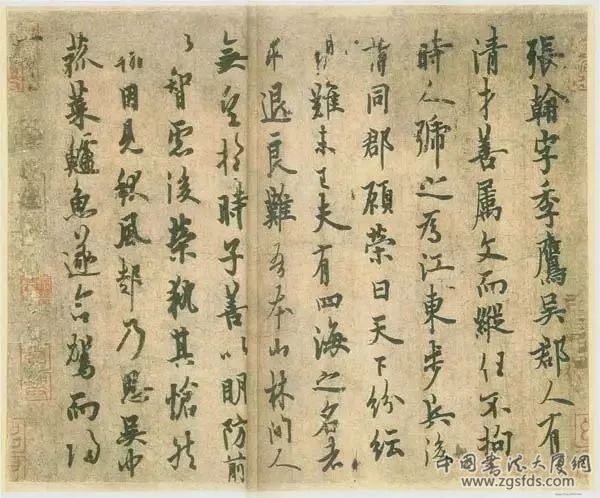 張翰字季鷹吳郡人有
清才善屬文而縱任不拘
時人號之為江東步兵後
謂同郡顧榮曰天下紛紜
禍難未已夫有四海之名者
求退良難吾本山林間人
無望於時子善以明防前
以智慮後榮執其愴然
翰因見秋風起乃思吳中
菰菜鱸魚遂命駕而歸
中国书法大厦网
www.zgsfds.com